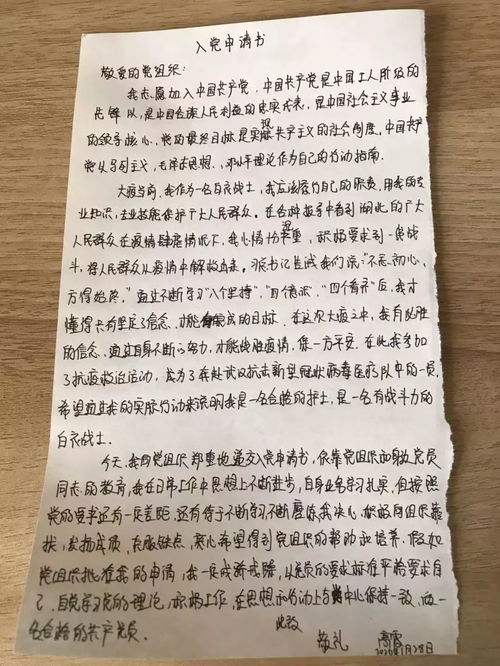 入党申请书
敬爱的党组织：
我志愿加入中国共产党，中国共产党是中国工人阶级的
先锋队，是中国各族人民利益的忠实代表，是中国社会主义事业
的领导核心，党的最终目标是实现共产主义的社会制度，中国共产
党以马列主义，毛泽东思想，邓小平理论作为自己的行动指南。
大疫当前，我作为一名白衣战士，我应该履行自己的职责，用我的专
业知识，专业技能保护广大人民群众。在各种报导中看到湖北的广大
人民群众在疫情肆虐情况下，我心情沉重，积极要求到一线战
斗，将人民群众从疫情中解救出来。张书记告诫我们说："不忘初心，
方得始终，"通过不断学习"八个坚持"，"四个意识"，"四个看齐"后，我才
懂得只有坚定了信念，才能完成的目标，在这次大疫之中，我有必胜
的信念，通过自身不断的努力，才能战胜疫情，保一方平安。在此我参加
了抗疫救治活动，成为了奔赴武汉抗击新型冠状病毒医疗队中的一员，
希望通过我的实际行动来说明我是一名合格的护士，是一名有战斗力的
白衣战士。
今天，我向党组织郑重地递交入党申请书，依靠党组织和身边党员
同志的教育，我在日常工作中思想上不断进步，自身业务学习扎实，但按照
党的要求还有一定差距，还有待于不断学习不断磨练我决心，积极向组织靠
拢，发扬成绩，克服缺点，衷心希望得到党组织的帮助和培养。假如
党组织批准我的申请，我一定戒骄戒躁，以党员的要求标准严格要求自
己，自觉学习党的理论，积极工作，在思想和行动上与中心保持一致，做一
名合格的共产党员。
此致
敬礼
2020年1月28日